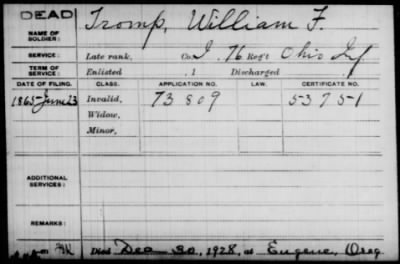 DEAD
NAME OF SOLDIER: Tromp, William F.
SERVICE: Late rank, Co. I, 76 Reg't Ohio Inf
TERM OF SERVICE: Enlisted , 1 Discharged
DATE OF FILING. CLASS. APPLICATION NO. LAW. CERTIFICATE NO.
1865-June 23 Invalid, 73 809 53751
Widow,
Minor,
ADDITIONAL SERVICES:
REMARKS:
Died Dec 30, 1928, at Eugene, Oreg